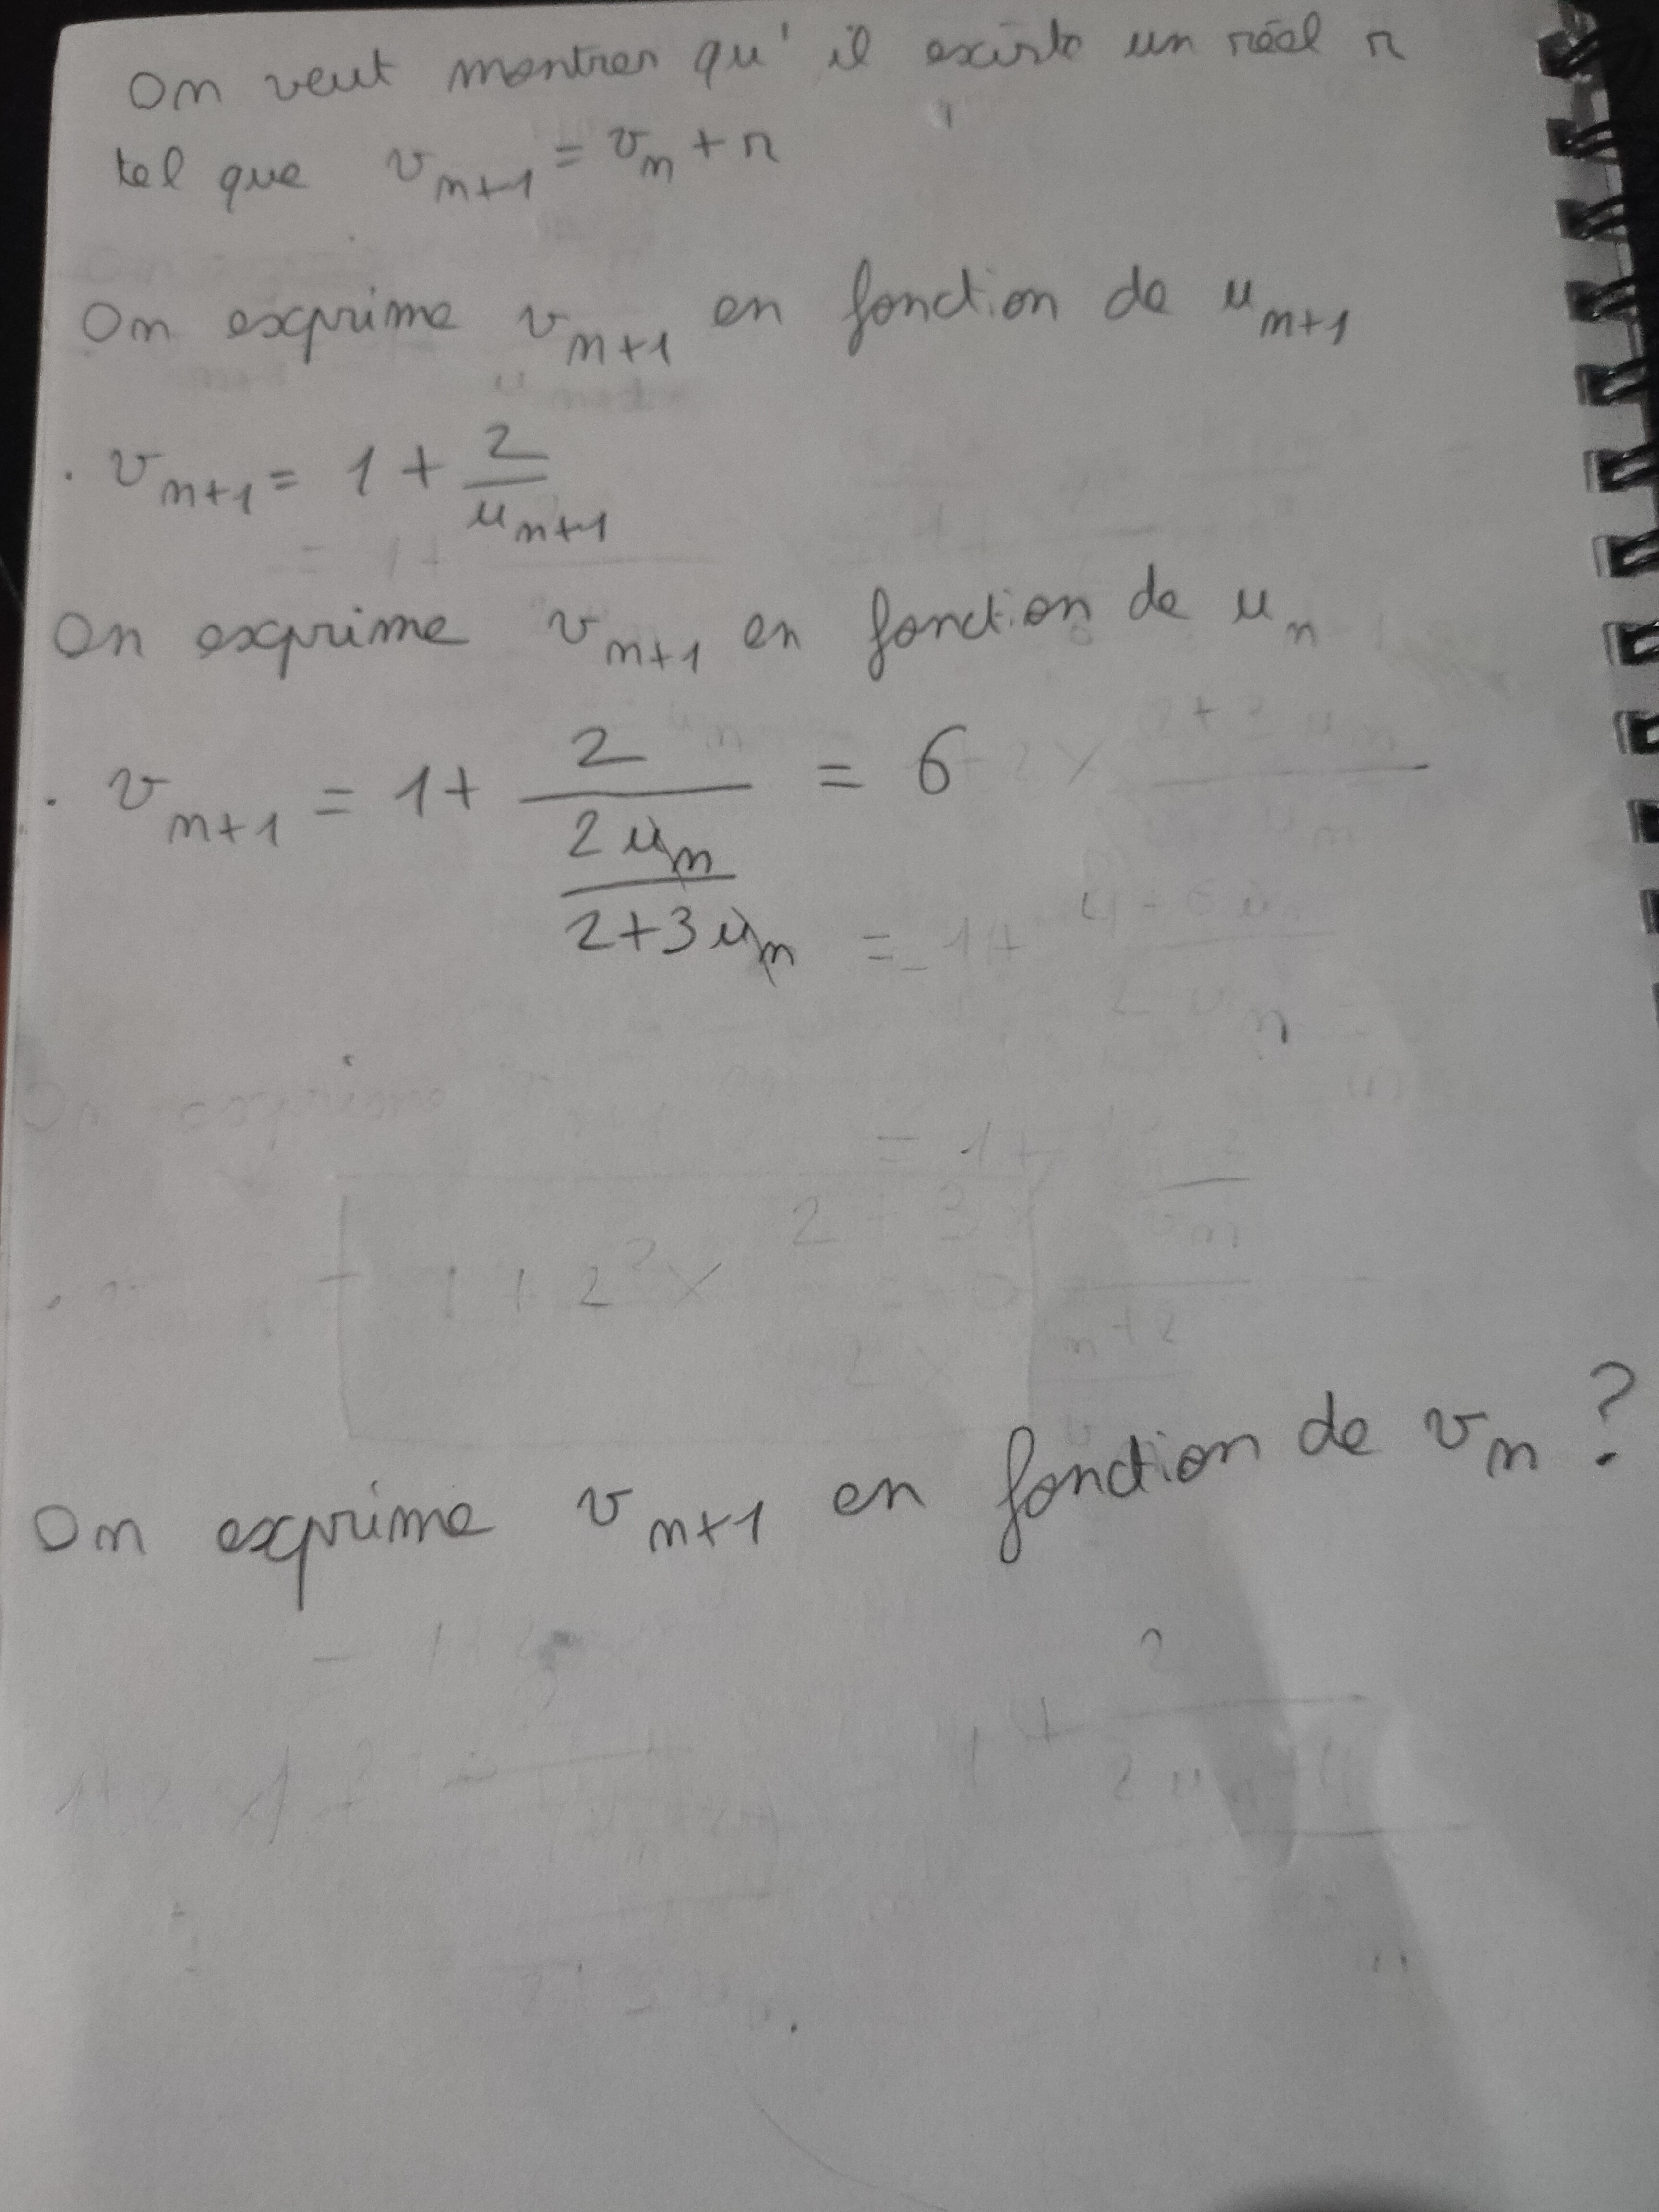 On veut montrer qu'il existe un réel r
tel que v_{n+1} = v_n + r
On exprime v_{n+1} en fonction de u_{n+1}
. v_{n+1} = 1 + 2/u_{n+1}
On exprime v_{n+1} en fonction de u_n
. v_{n+1} = 1 + 2/(2u_n/(2+3u_n)) = 6
On exprime v_{n+1} en fonction de v_n ?